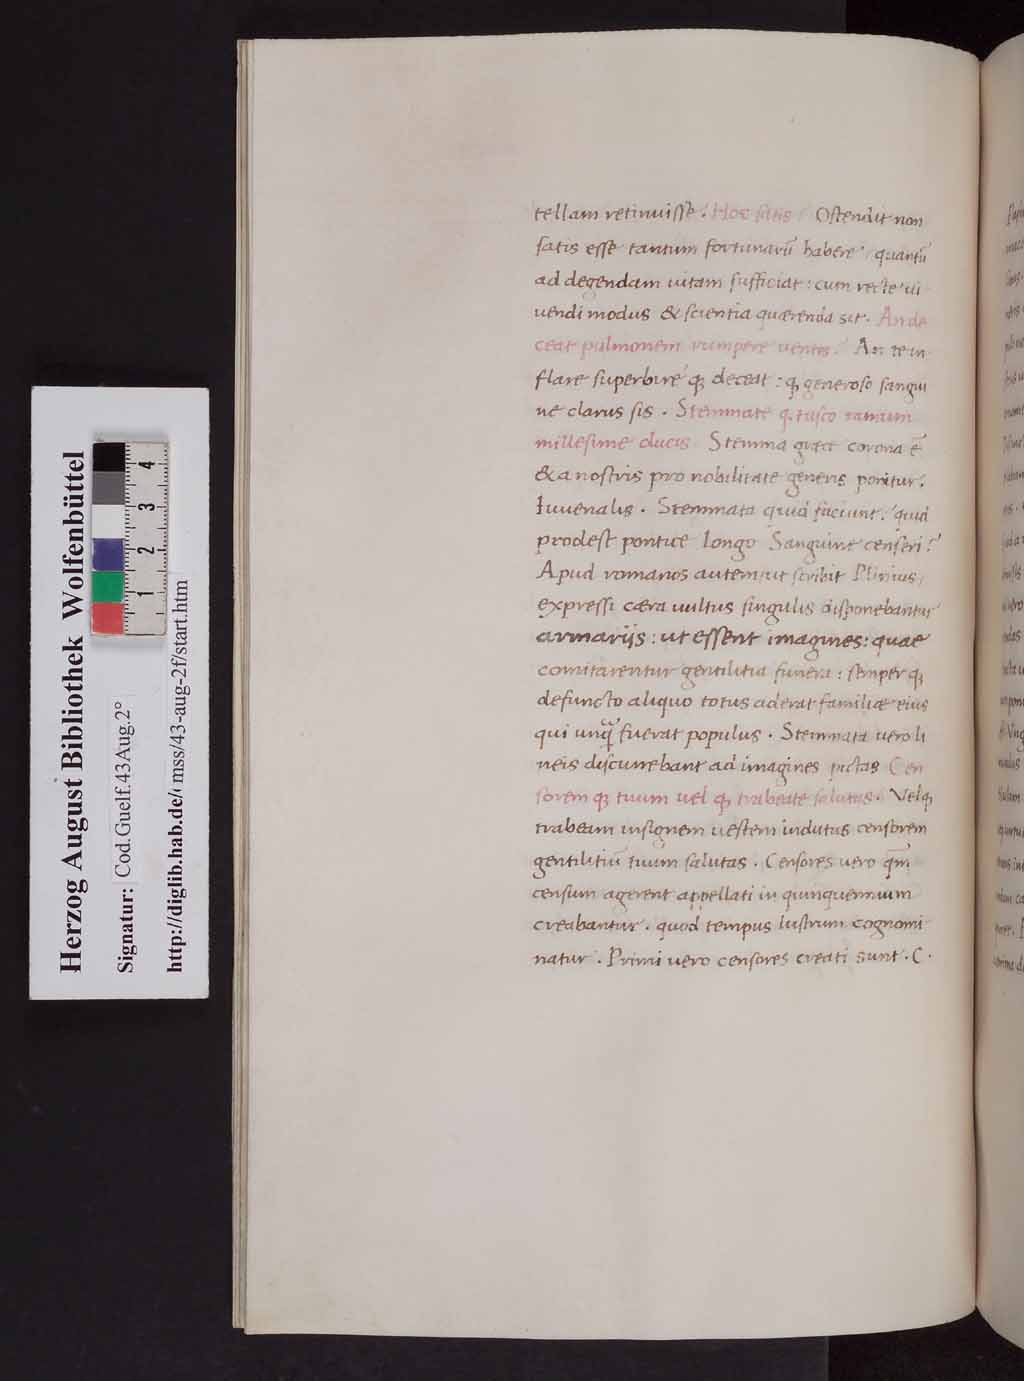 tellam retinuisse. Hoc satis. Ostendit non
satis esse tantum fortunarū habere quantū
ad degendam uitam sufficiat: cum recte ui
uendi modus & scientia quærenda sit. An de
ceat pulmonem rumpere uentis. An te in
flare superbire q; deceat: q; generoso sangui
ne clarus sis. Stemmate q. tusco ramum
millesime ducis Stemma græce corona ē
& a nostris pro nobilitate generis ponitur.
Iuuenalis. Stemmata quid faciunt? quid
prodest pontice longo Sanguine censeri?
Apud romanos autem, ut scribit Plinius,
expressi cæra uultus singulis disponebantur
armarijs: ut essent imagines: quae
comitarentur gentilitia funera: semper q;
defuncto aliquo totus aderat familiæ eius
qui unq̄ fuerat populus. Stemmata uero li
neis discurrebant ad imagines pictas Cen
sorem q; tuum uel q; trabeate salutas. Vel q;
trabeam insignem uestem indutus censorem
gentilitiū tuum salutas. Censores uero qm̄
censum agerent appellati in quinquennium
creabantur. quod tempus lustrum cognomi
natur. Primi uero censores creati sunt. C.
Herzog August Bibliothek Wolfenbüttel
Signatur: Cod. Guelf. 43 Aug. 2°
http://diglib.hab.de/ mss/43-aug-2f/start.htm
1 2 3 4